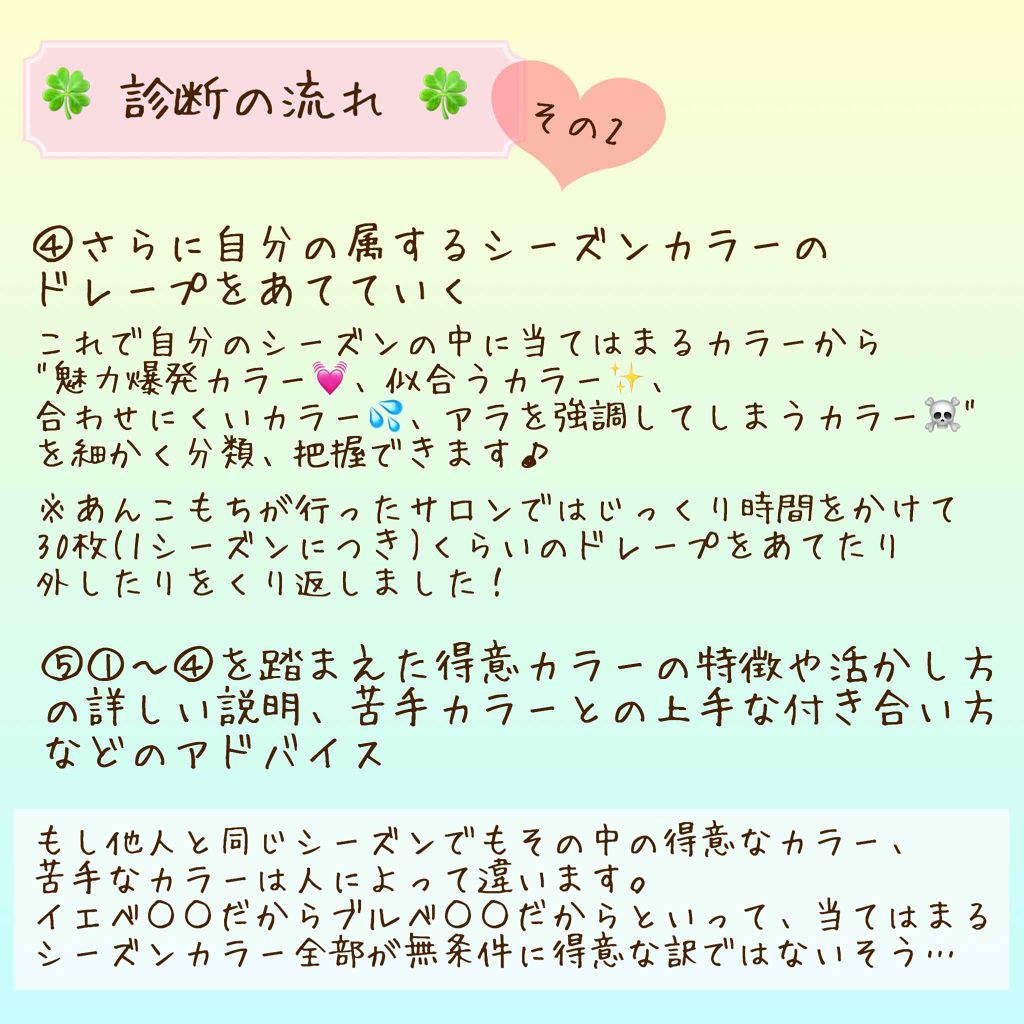 🍀 診断の流れ 🍀
その2
④さらに自分の属するシーズンカラーの
ドレープをあてていく
これで自分のシーズンの中に当てはまるカラーから
"魅力爆発カラー💓、似合うカラー✨、
合わせにくいカラー💦、アラを強調してしまうカラー☠️"
を細かく分類、把握できます♪
※あんこもちが行ったサロンではじっくり時間をかけて
30枚(1シーズンにつき)くらいのドレープをあてたり
外したりをくり返しました!
⑤①〜④を踏まえた得意カラーの特徴や活かし方
の詳しい説明、苦手カラーとの上手な付き合い方
などのアドバイス
もし他人と同じシーズンでもその中の得意なカラー、
苦手なカラーは人によって違います。
イエベ〇〇だからブルベ〇〇だからといって、当てはまる
シーズンカラー全部が無条件に得意な訳ではないそう…